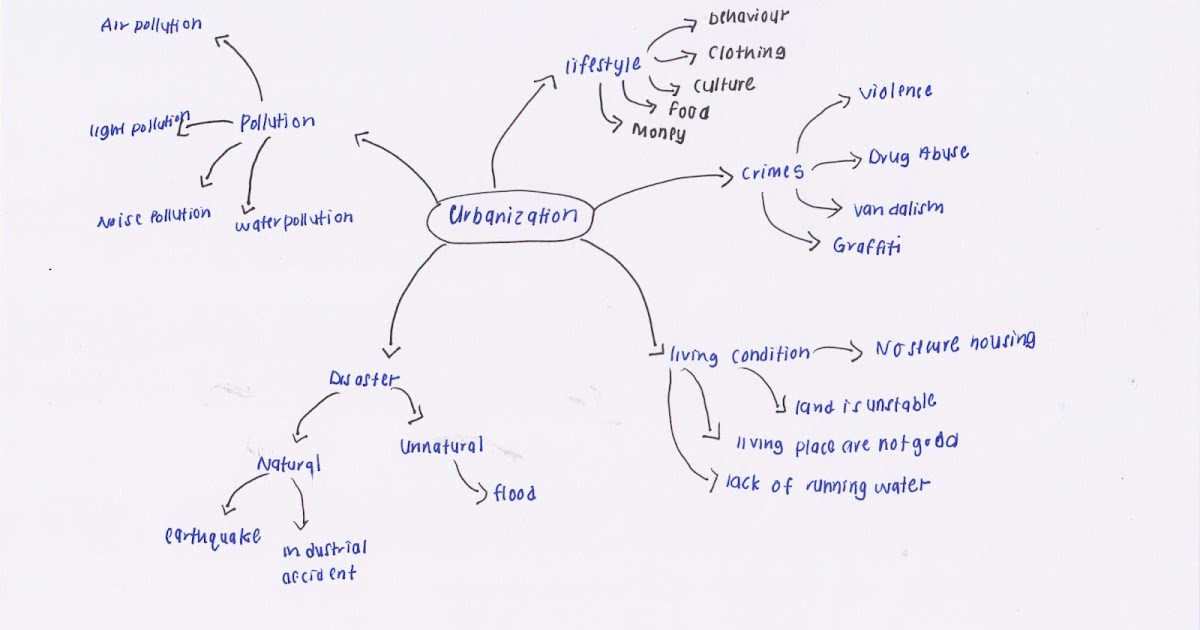 Air pollution
light pollution
Pollution
Noise Pollution
water pollution
lifestyle
behaviour
Clothing
culture
food
Money
Crimes
violence
Drug Abuse
vandalism
Graffiti
Urbanization
living condition
No secure housing
land is unstable
living place are not good
lack of running water
Disaster
Natural
earthquake
industrial
accident
Unnatural
flood